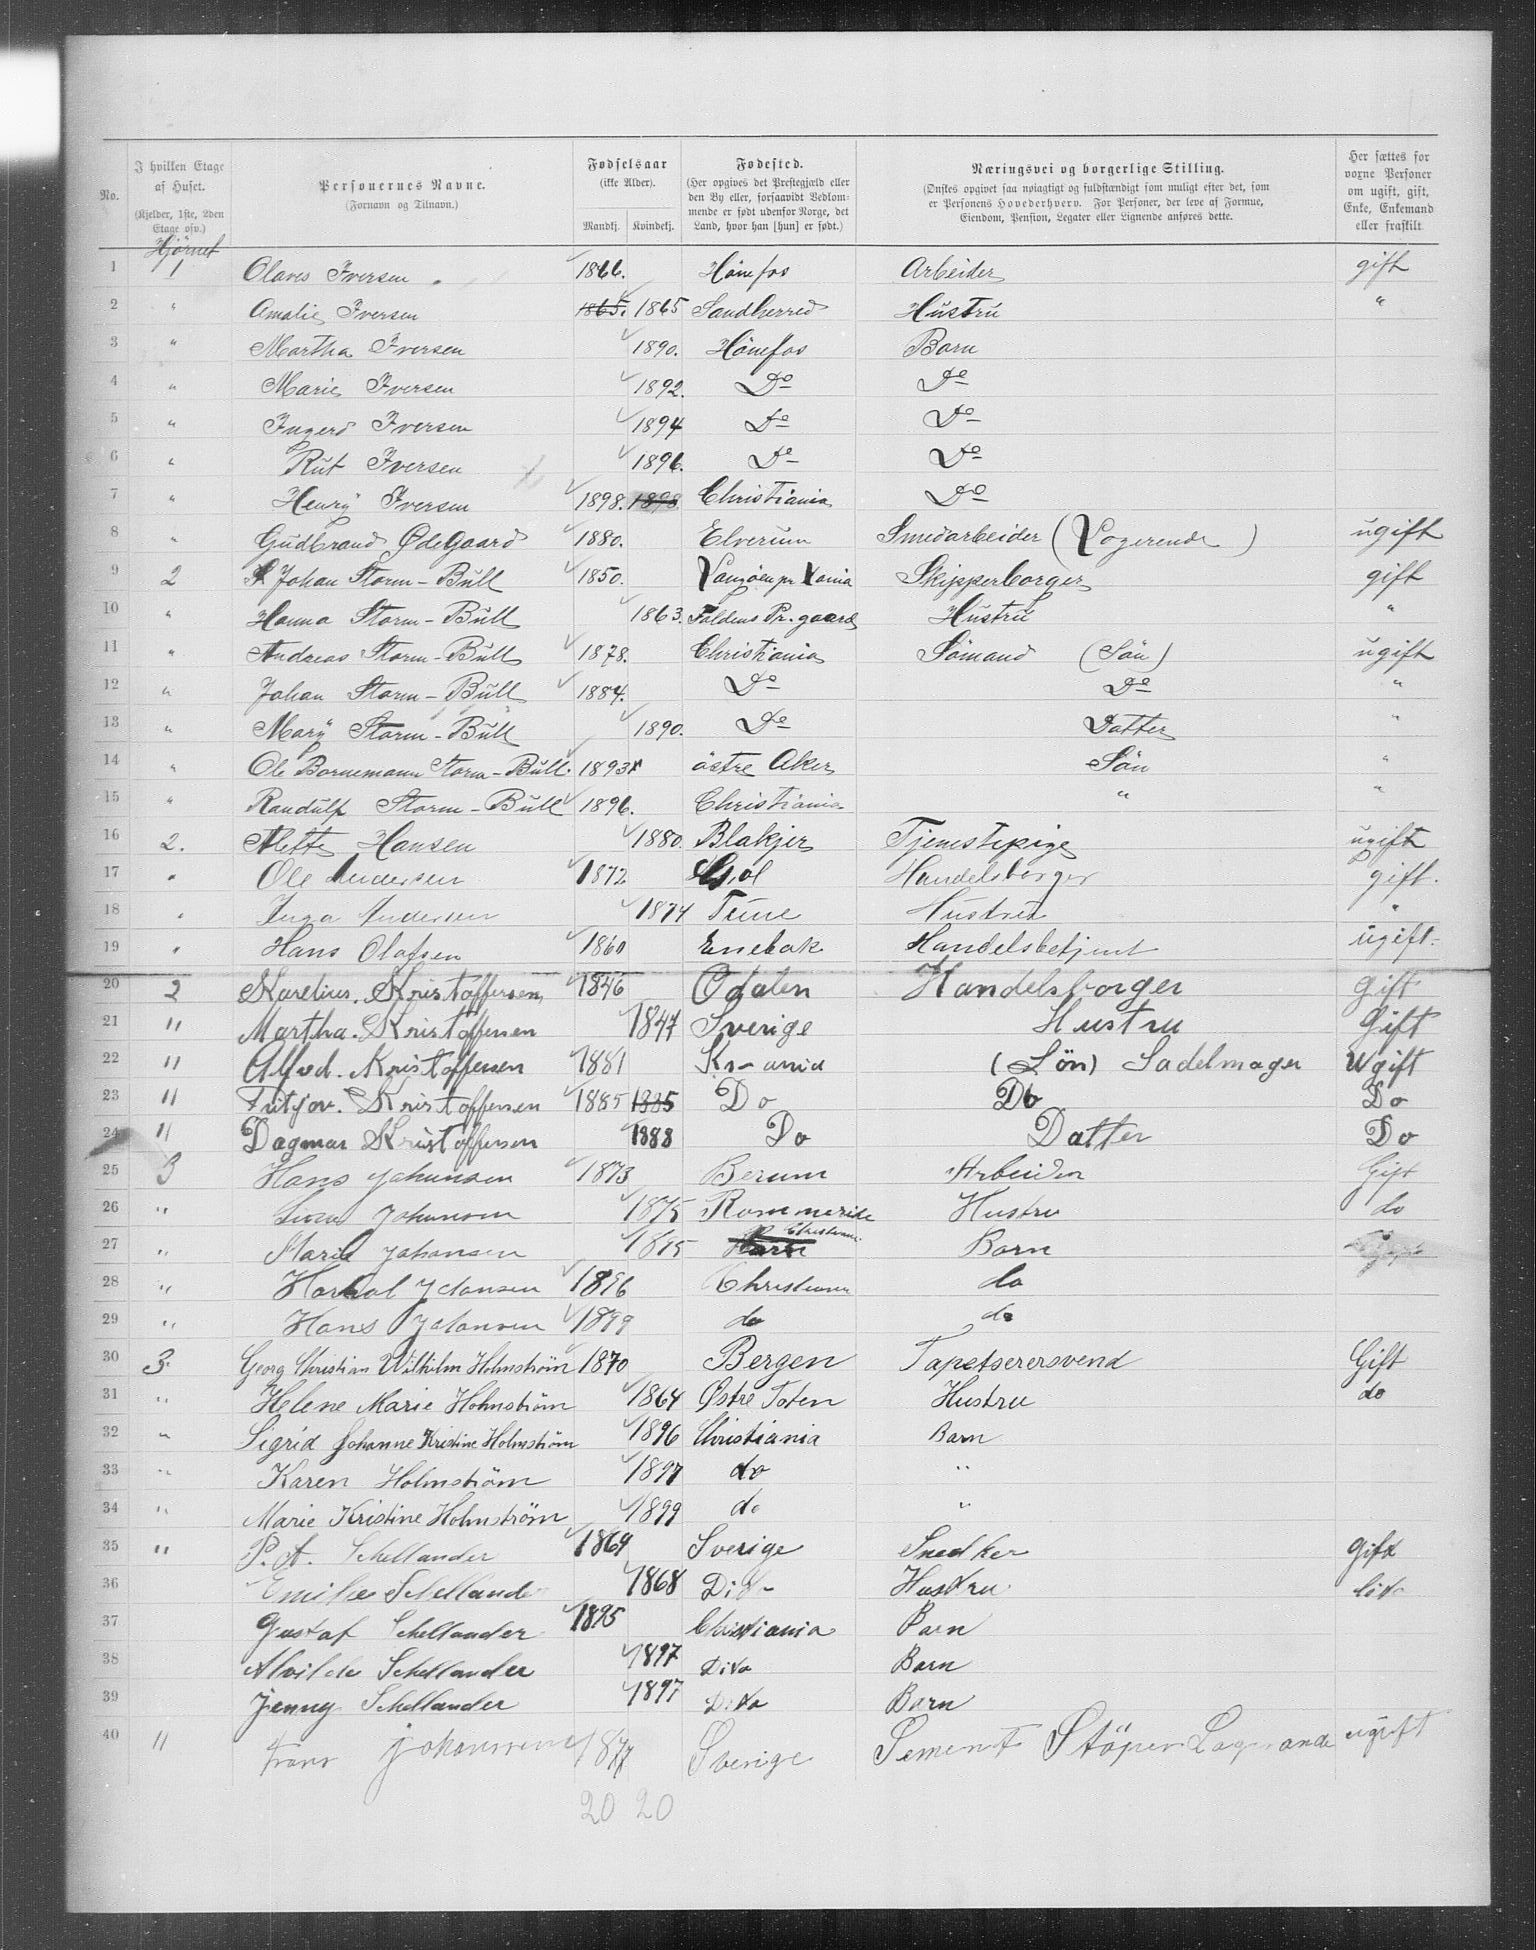 No. | I hvilken Etage af Huset. (Kjelder, 1ste, 2den Etage osv.) | Personernes Navne. (Fornavn og Tilnavn.) | Fødselsaar (ikke Alder). Mandkj. | Kvindekj. | Fødested. (Her opgives det Prestegjæld eller den By eller, forsaavidt Vedkommende er født udenfor Norge, det Land, hvor han [hun] er født.) | Næringsvei og borgerlige Stilling. (Ønskes opgivet saa nøiagtigt og fuldstændigt som muligt efter det, som er Personens Hovederhverv. For Personer, der leve af Formue, Eiendom, Pension, Legater eller Lignende anføres dette.) | Her sættes for voxne Personer om ugift, gift, Enke, Enkemand eller fraskilt
Hjørnet
1 | 1 | Olaves Iversen | 1866. | Hönefos | Arbeider | gift
2 | " | Amalie Iversen | 1865. 1865 | Sandherred | Hustru | "
3 | " | Martha Iversen | 1890. | Hönefos | Barn
4 | " | Marie Iversen | 1892. | Do | Do
5 | " | Ingerd Iversen | 1894 | Do | Do
6 | " | Rut Iversen | 1896. | Do | Do
7 | " | Henry Iversen | 1898. 1898 | Christiania | Do
8 | " | Gudbrand Ødegaard | 1880. | Elverum | Smedarbeider (Logerende) | ugift
9 | 2 | Johan Storm-Bull | 1850. | pr | Skipperborger | gift
10 | " | Hanna Storm-Bull | 1863. | Foldens Pr.gaard | Hustru | "
11 | " | Andreas Storm-Bull | 1878. | Christiania | Sömand (Sön) | ugift
12 | " | Johan Storm-Bull | 1884. | Do | Do | "
13 | " | Mary Storm-Bull | 1890. | Do | Datter | "
14 | " | Ole Bornemann Storm-Bull. | 1893 | östre Aker | Sön | "
15 | " | Randulf Storm-Bull | 1896. | Christiania | " | "
16 | 2. | Mette Hansen | 1880. | Blakjer | Tjenestepige | ugift
17 | " | Ole Andersen | 1872 | | Handelsborger | gift.
18 | " | Inga Andersen | 1874 | Tune | Hustru | "
19 | " | Hans Olafsen | 1860 | Enebak | Handelsbetjent | ugift
20 | 2 | Karelius. Kristoffersen | 1846 | Odalen | Handelsborger | Gift
21 | " | Martha. Kristoffersen | 1847 | Sverige | Hustru | Gift
22 | " | Alfred. Kristoffersen | 1881 | Kr-ania | (Sön) Sadelmager | Ugift
23 | " | Fritjov. Kristoffersen | 1885 1885 | Do | Do | Do
24 | " | Dagmar Kristoffersen | 1888 | Do | Datter | Do
25 | 3 | Hans Johansen | 1873 | Berum | Arbeider | Gift
26 | " | Johansen | 1875 | Rommerike | Hustru | do
27 | " | Marie Johansen | 1895 | Barn Christiania | Barn
28 | " | Harald Johansen | 1896 | Christiania | do
29 | " | Hans Johansen | 1899 | do | do
30 | 3. | Georg Christian Wilhilm Holmström | 1870 | Bergen | Tapetserersvend | Gift
31 | " | Helene Marie Holmström | 1864 | Østre Toten | Hustru | do
32 | " | Sigrid Johanne Kristine Holmström | 1896 | Christiania | Barn
33 | " | Karen Holmström | 1897 | do | "
34 | " | Marie Kristine Holmström | 1899 | do | "
35 | " | P. A. Schellander | 1869 | Sverige | Snedker | Gift
36 | Emilie Schellander | 1868 | Dito | Hustru | dito
37 | Gustaf Schellander | 1895 | Christiania | Barn
38 | Alvilde Schellander | 1897 | Dito | Barn
39 | Jenny Schellander | 1897 | Dito | Barn
40 | " | Frans Johanssen | 1877 | Sverige | Sement Stöper | ugift
20 20